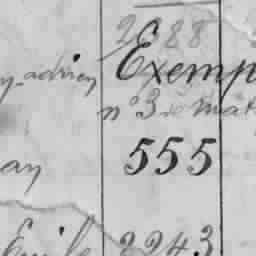 2088
Exemp
y adrien
n° 3 mat
555
ay
Emile 2243